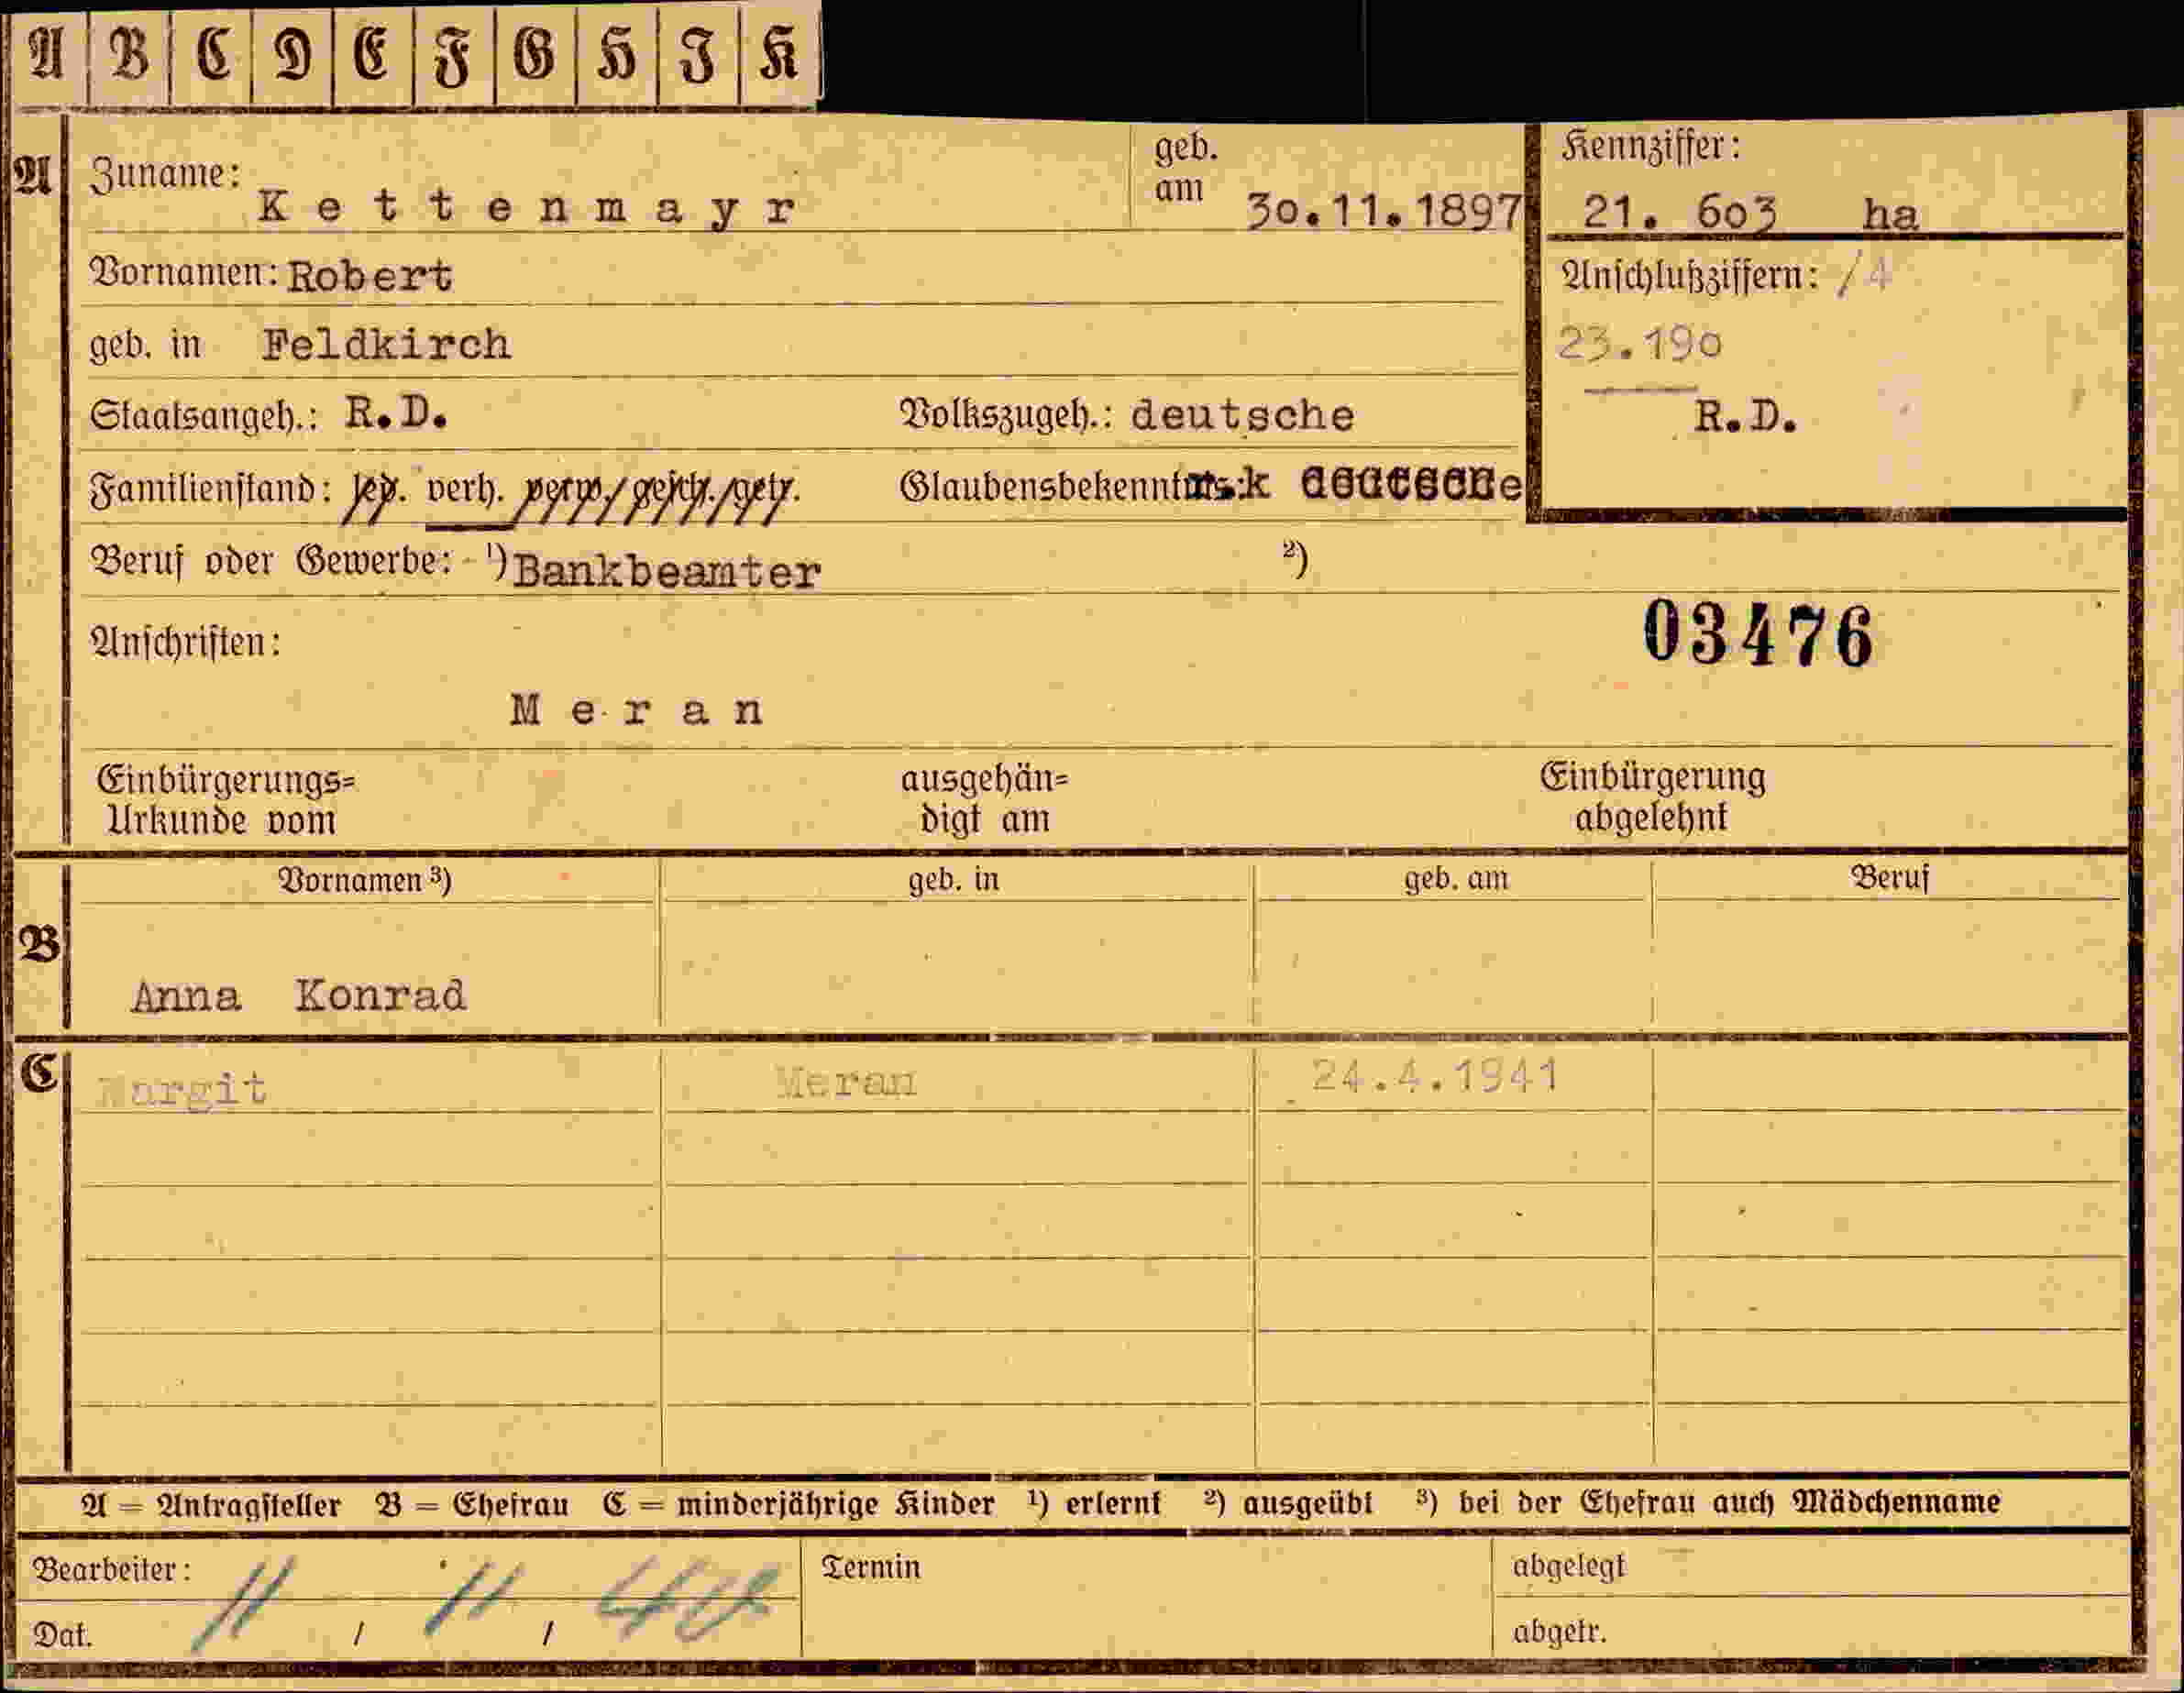 A B C D E F G H I K
A
Zuname: Kettenmayr
geb. am 30.11.1897
Kennziffer:
21. 603 ha
Vornamen: Robert
Anschlußziffern: /4
geb. in Feldkirch
23.190
Staatsangeh.: R.D. Volkszugeh.: deutsche
R.D.
Familienstand: led. verh. verw./gesch./getr. Glaubensbekenntnis: k
Beruf oder Gewerbe: ¹) Bankbeamter ²)
Anschriften:
03476
Meran
Einbürgerungs=
Urkunde vom
ausgehän=
digt am
Einbürgerung
abgelehnt
Vornamen ³) geb. in geb. am Beruf
B
Anna Konrad
C
Margit Meran 24.4.1941
A = Antragsteller B = Ehefrau C = minderjährige Kinder ¹) erlernt ²) ausgeübt ³) bei der Ehefrau auch Mädchenname
Bearbeiter:
Termin
abgelegt
Dat. 11 / 11 /
abgetr.